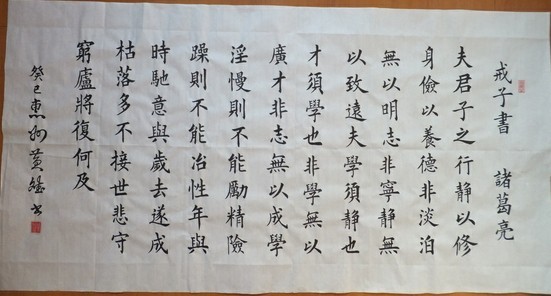 戒子書 諸葛亮
夫君子之行静以修
身儉以養德非淡泊
無以明志非寧静無
以致遠夫學須静也
才須學也非學無以
廣才非志無以成學
淫慢則不能勵精險
躁則不能冶性年與
時馳意與歲去遂成
枯落多不接世悲守
窮廬將復何及
癸巳惠州黄書